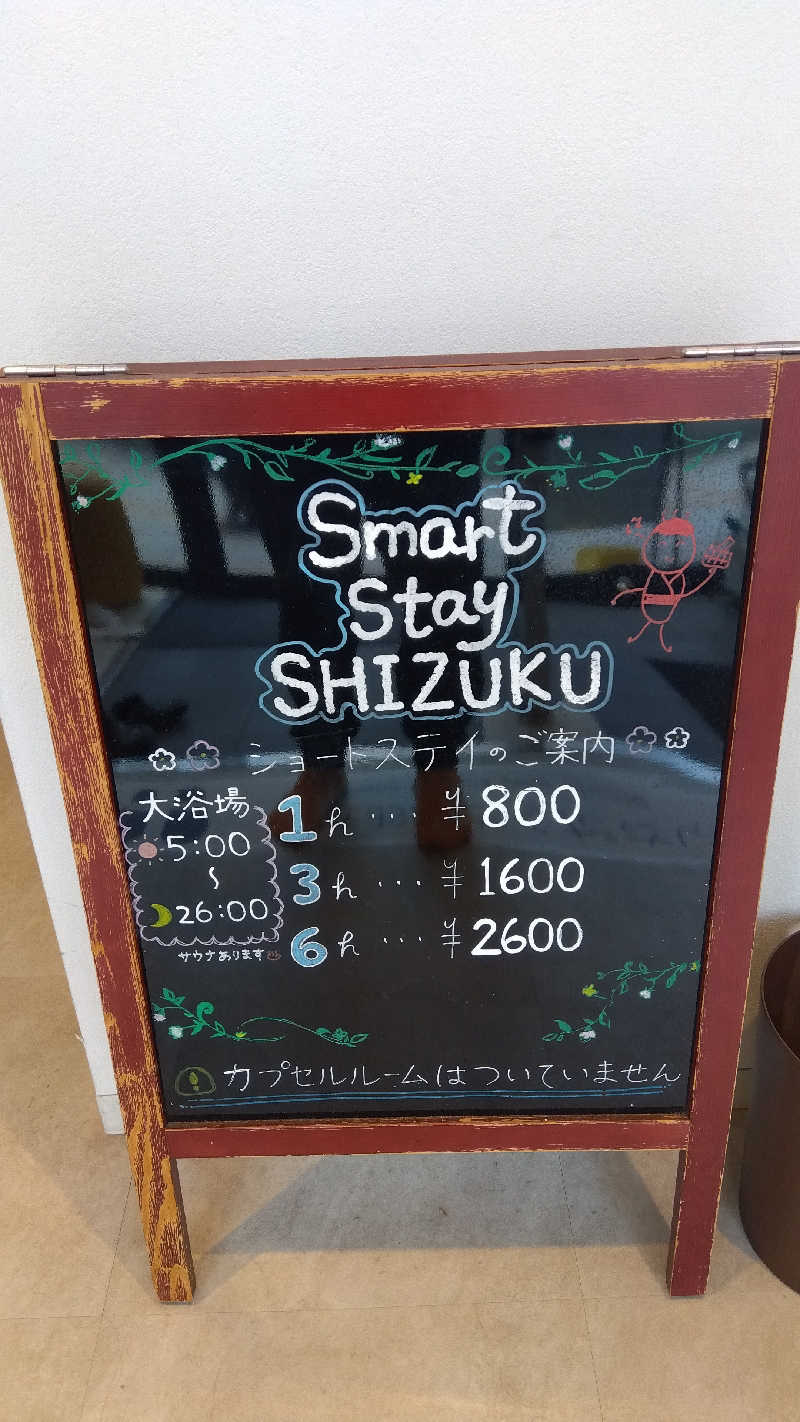 Smart
Stay
SHIZUKU
ショートステイのご案内
大浴場
5:00
〜
26:00
サウナあります
1h … ¥800
3h … ¥1600
6h … ¥2600
カプセルルームはついていません